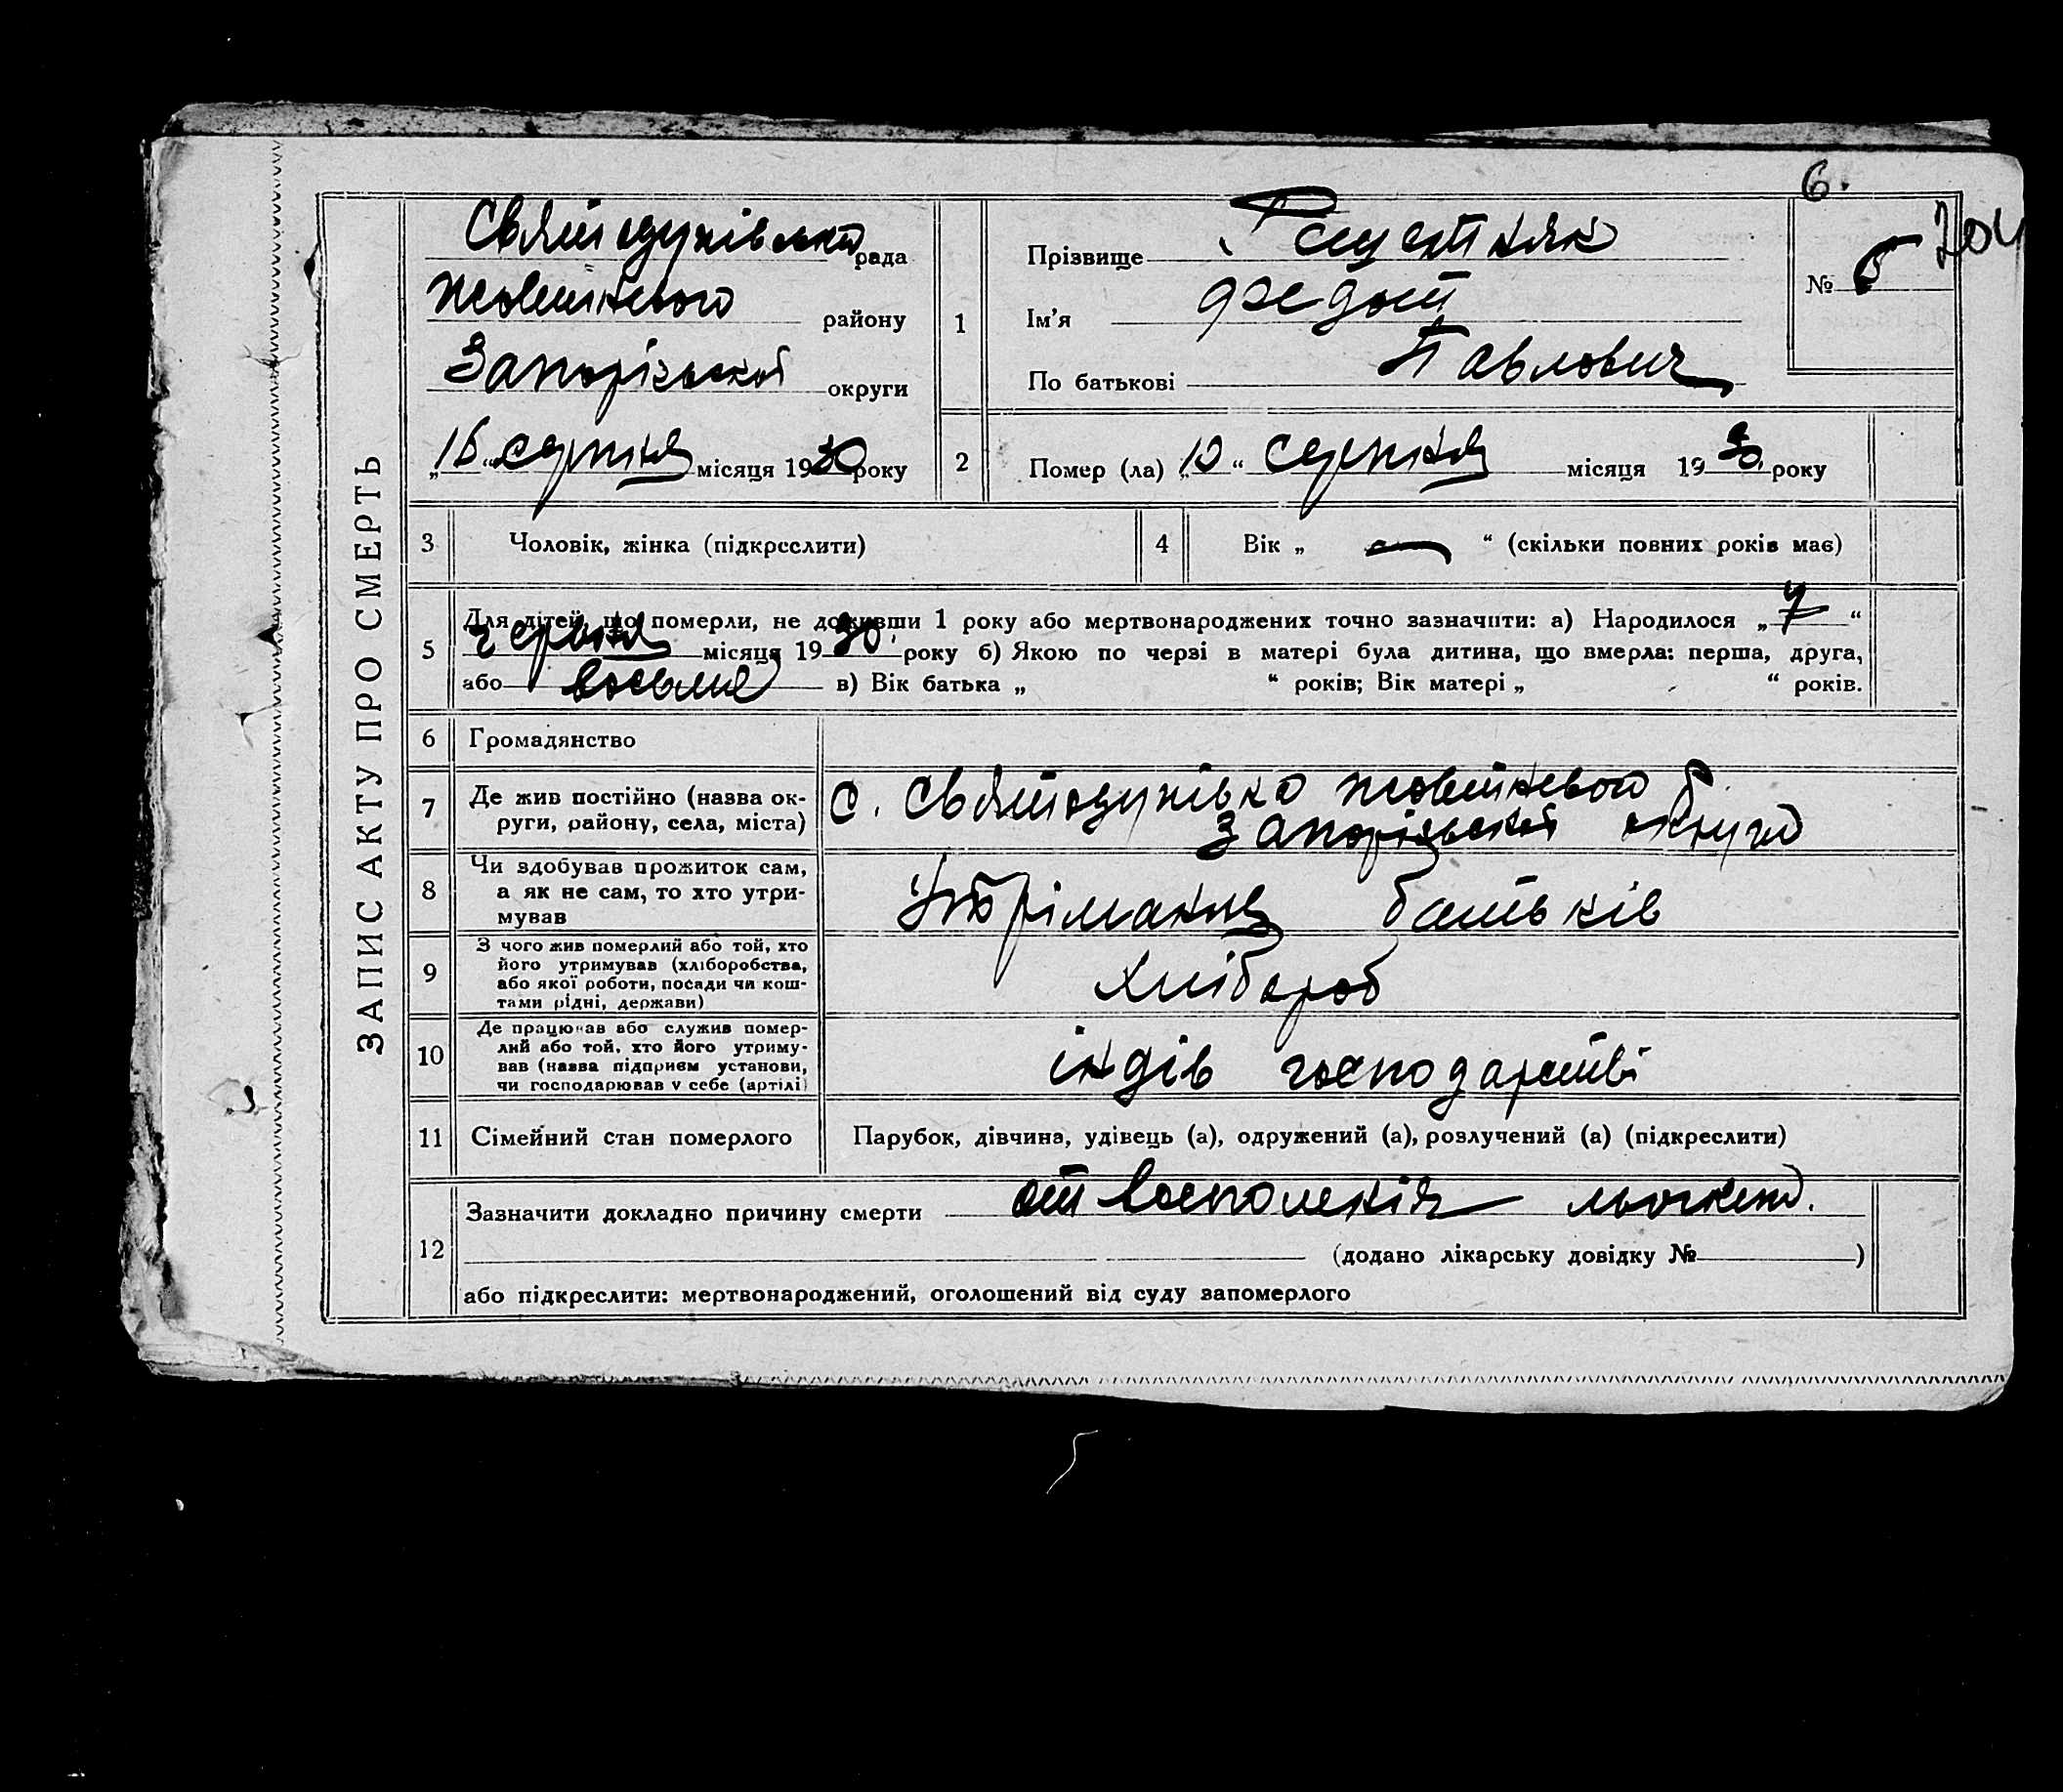 6.
ЗАПИС АКТУ ПРО СМЕРТЬ
Святодухівська рада
Жовтневого району
Запорізької округи
„16“ серпня місяця 1930 року
1
Прізвище
Ім'я Федот
По батькові Павлович
№ 5
204
2
Помер (ла) „10“ серпня місяця 1930 року
3 Чоловік, жінка (підкреслити)
4 Вік „ — “ (скільки повних років має)
5
Для дітей, що померли, не доживши 1 року або мертвонароджених точно зазначити: а) Народилося „7“
червня місяця 1930 року б) Якою по черзі в матері була дитина, що вмерла: перша, друга,
або восьме в) Вік батька „ “ років; Вік матері „ “ років.
6 Громадянство
7
Де жив постійно (назва ок-
руги, району, села, міста)
с. Святодухівка Жовтневого р.
Запорізької округи
8
Чи здобував прожиток сам,
а як не сам, то хто утри-
мував
Утріманне батьків
9
З чого жив померлий або той, хто
його утримував (хліборобства,
або якої роботи, посади чи кош-
тами рідні, держави)
Хлібороб
10
Де працював або служив помер-
лий або той, хто його утриму-
вав (назва підприєм установи,
чи господарював у себе (артілі)
індів господарстві
11 Сімейний стан померлого
Парубок, дівчина, удівець (а), одружений (а), розлучений (а) (підкреслити)
12
Зазначити докладно причину смерти от восполенія
(додано лікарську довідку № )
або підкреслити: мертвонароджений, оголошений від суду запомерлого